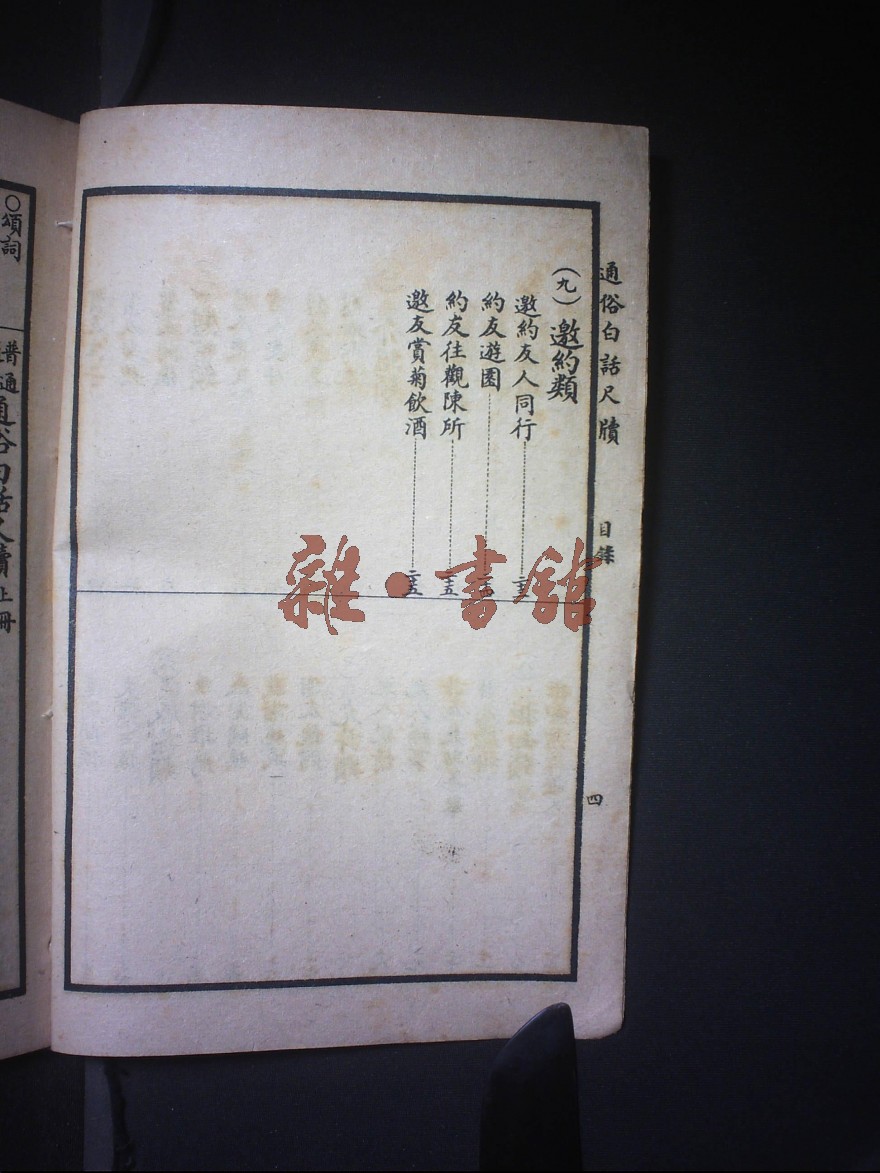 通俗白話尺牘 目錄 四
(九)邀約類
邀約友人同行
約友遊園
約友往觀陳所
邀友賞菊飲酒
雜·書館
○頌詞
普通通俗白話尺牘上冊